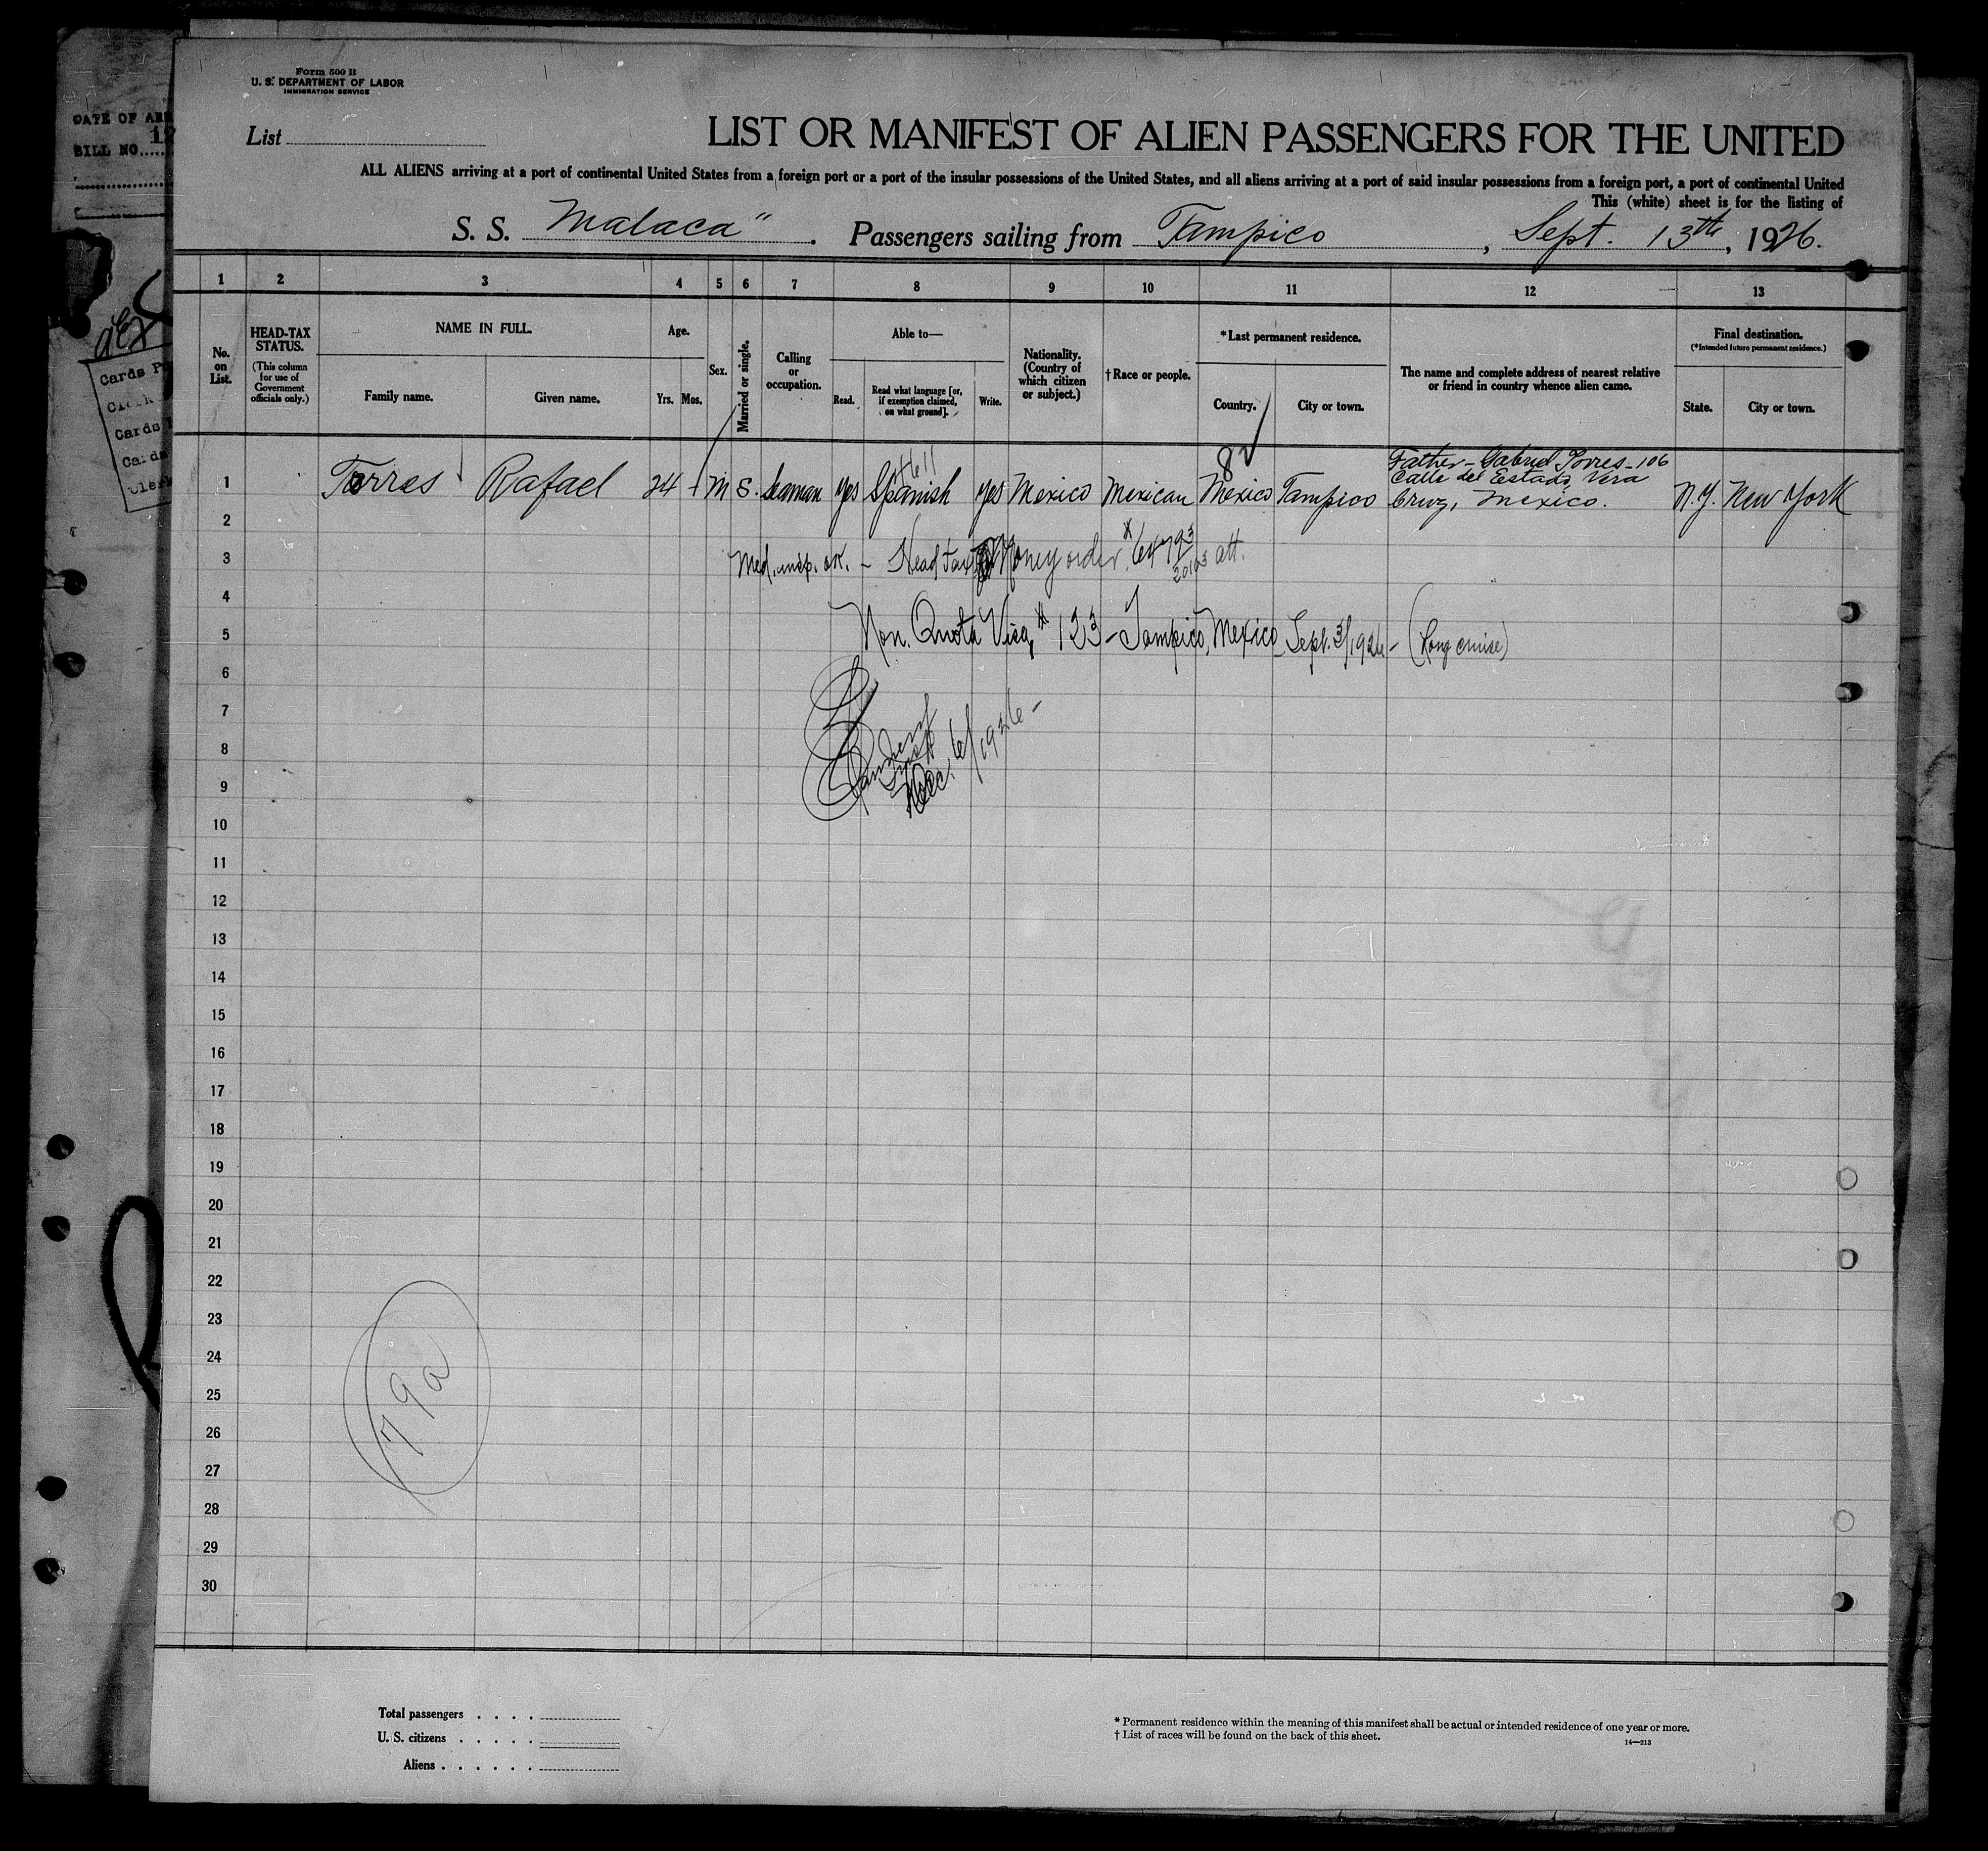 DATE OF ARR
12
BILL NO.....
Cards P
Cards
Form 500 B
U. S. DEPARTMENT OF LABOR
IMMIGRATION SERVICE
List
LIST OR MANIFEST OF ALIEN PASSENGERS FOR THE UNITED
ALL ALIENS arriving at a port of continental United States from a foreign port or a port of the insular possessions of the United States, and all aliens arriving at a port of said insular possessions from a foreign port, a port of continental United
This (white) sheet is for the listing of
S. S. Malaca". Passengers sailing from Tampico, Sept. 13th, 1926.
1 2 3 4 5 6 7 8 9 10 11 12 13
No. on List.
HEAD-TAX STATUS.
(This column for use of Government officials only.)
NAME IN FULL.
Family name. Given name.
Age.
Yrs. Mos.
Sex.
Married or single.
Calling or occupation.
Able to—
Read. Read what language [or, if exemption claimed, on what ground]. Write.
Nationality. (Country of which citizen or subject.)
†Race or people.
*Last permanent residence.
Country. City or town.
The name and complete address of nearest relative or friend in country whence alien came.
Final destination.
(*Intended future permanent residence.)
State. City or town.
8
Father - Gabriel Torres - 106
Calle del Estado, Vera
1 Torres Rafael 24 m S. Seaman yes Spanish yes Mexico Mexican Mexico Tampico Cruz, Mexico. N.Y. New York
2
3 Med. insp. ok. - Head tax Money order att.
4
5 Non. Quota Visa # 123 - Tampico, Mexico Sept. 3/1926 - (Long cruise)
6
7
8 Dec. 6/1926 -
9
10
11
12
13
14
15
16
17
18
19
20
21
22
23
24
25
79a
26
27
28
29
30
Total passengers . . . .
U. S. citizens . . . . .
Aliens . . . . . .
* Permanent residence within the meaning of this manifest shall be actual or intended residence of one year or more.
† List of races will be found on the back of this sheet.
14—213